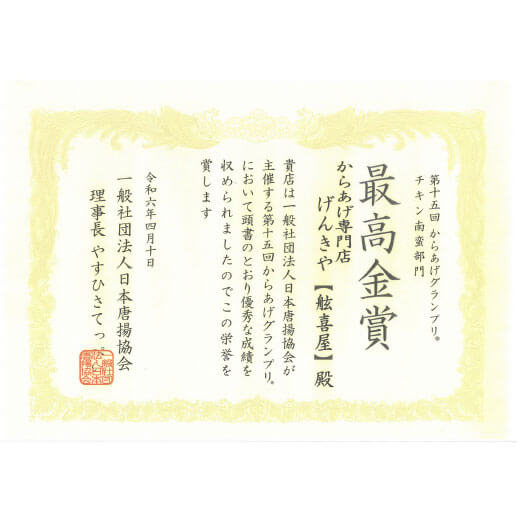 第十五回 からあげグランプリ®
チキン南蛮部門
最高金賞
からあげ専門店
げんきや【舷喜屋】殿
貴店は一般社団法人日本唐揚協会が
主催する第十五回からあげグランプリ®
において頭書のとおり優秀な成績を
収められましたのでこの栄誉を
賞します
令和六年四月十日
一般社団法人日本唐揚協会
理事長 やすひさてっぺい